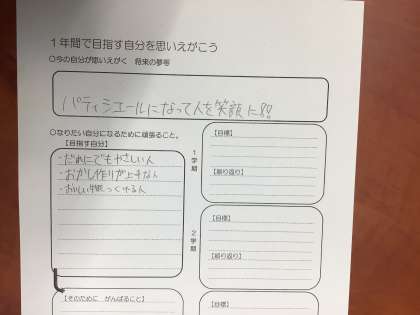 1年間で目指す自分を思いえがこう
○今の自分が思いえがく 将来の夢等
パティシエールになって人を笑顔に!!
○なりたい自分になるために頑張ること。
【目指す自分】
・だれにでもやさしい人
・おかし作りが上手な人
・おいしい物をつくれる人
1学期
【目標】
【振り返り】
2学期
【目標】
【振り返り】
【そのために がんばること】
【目標】